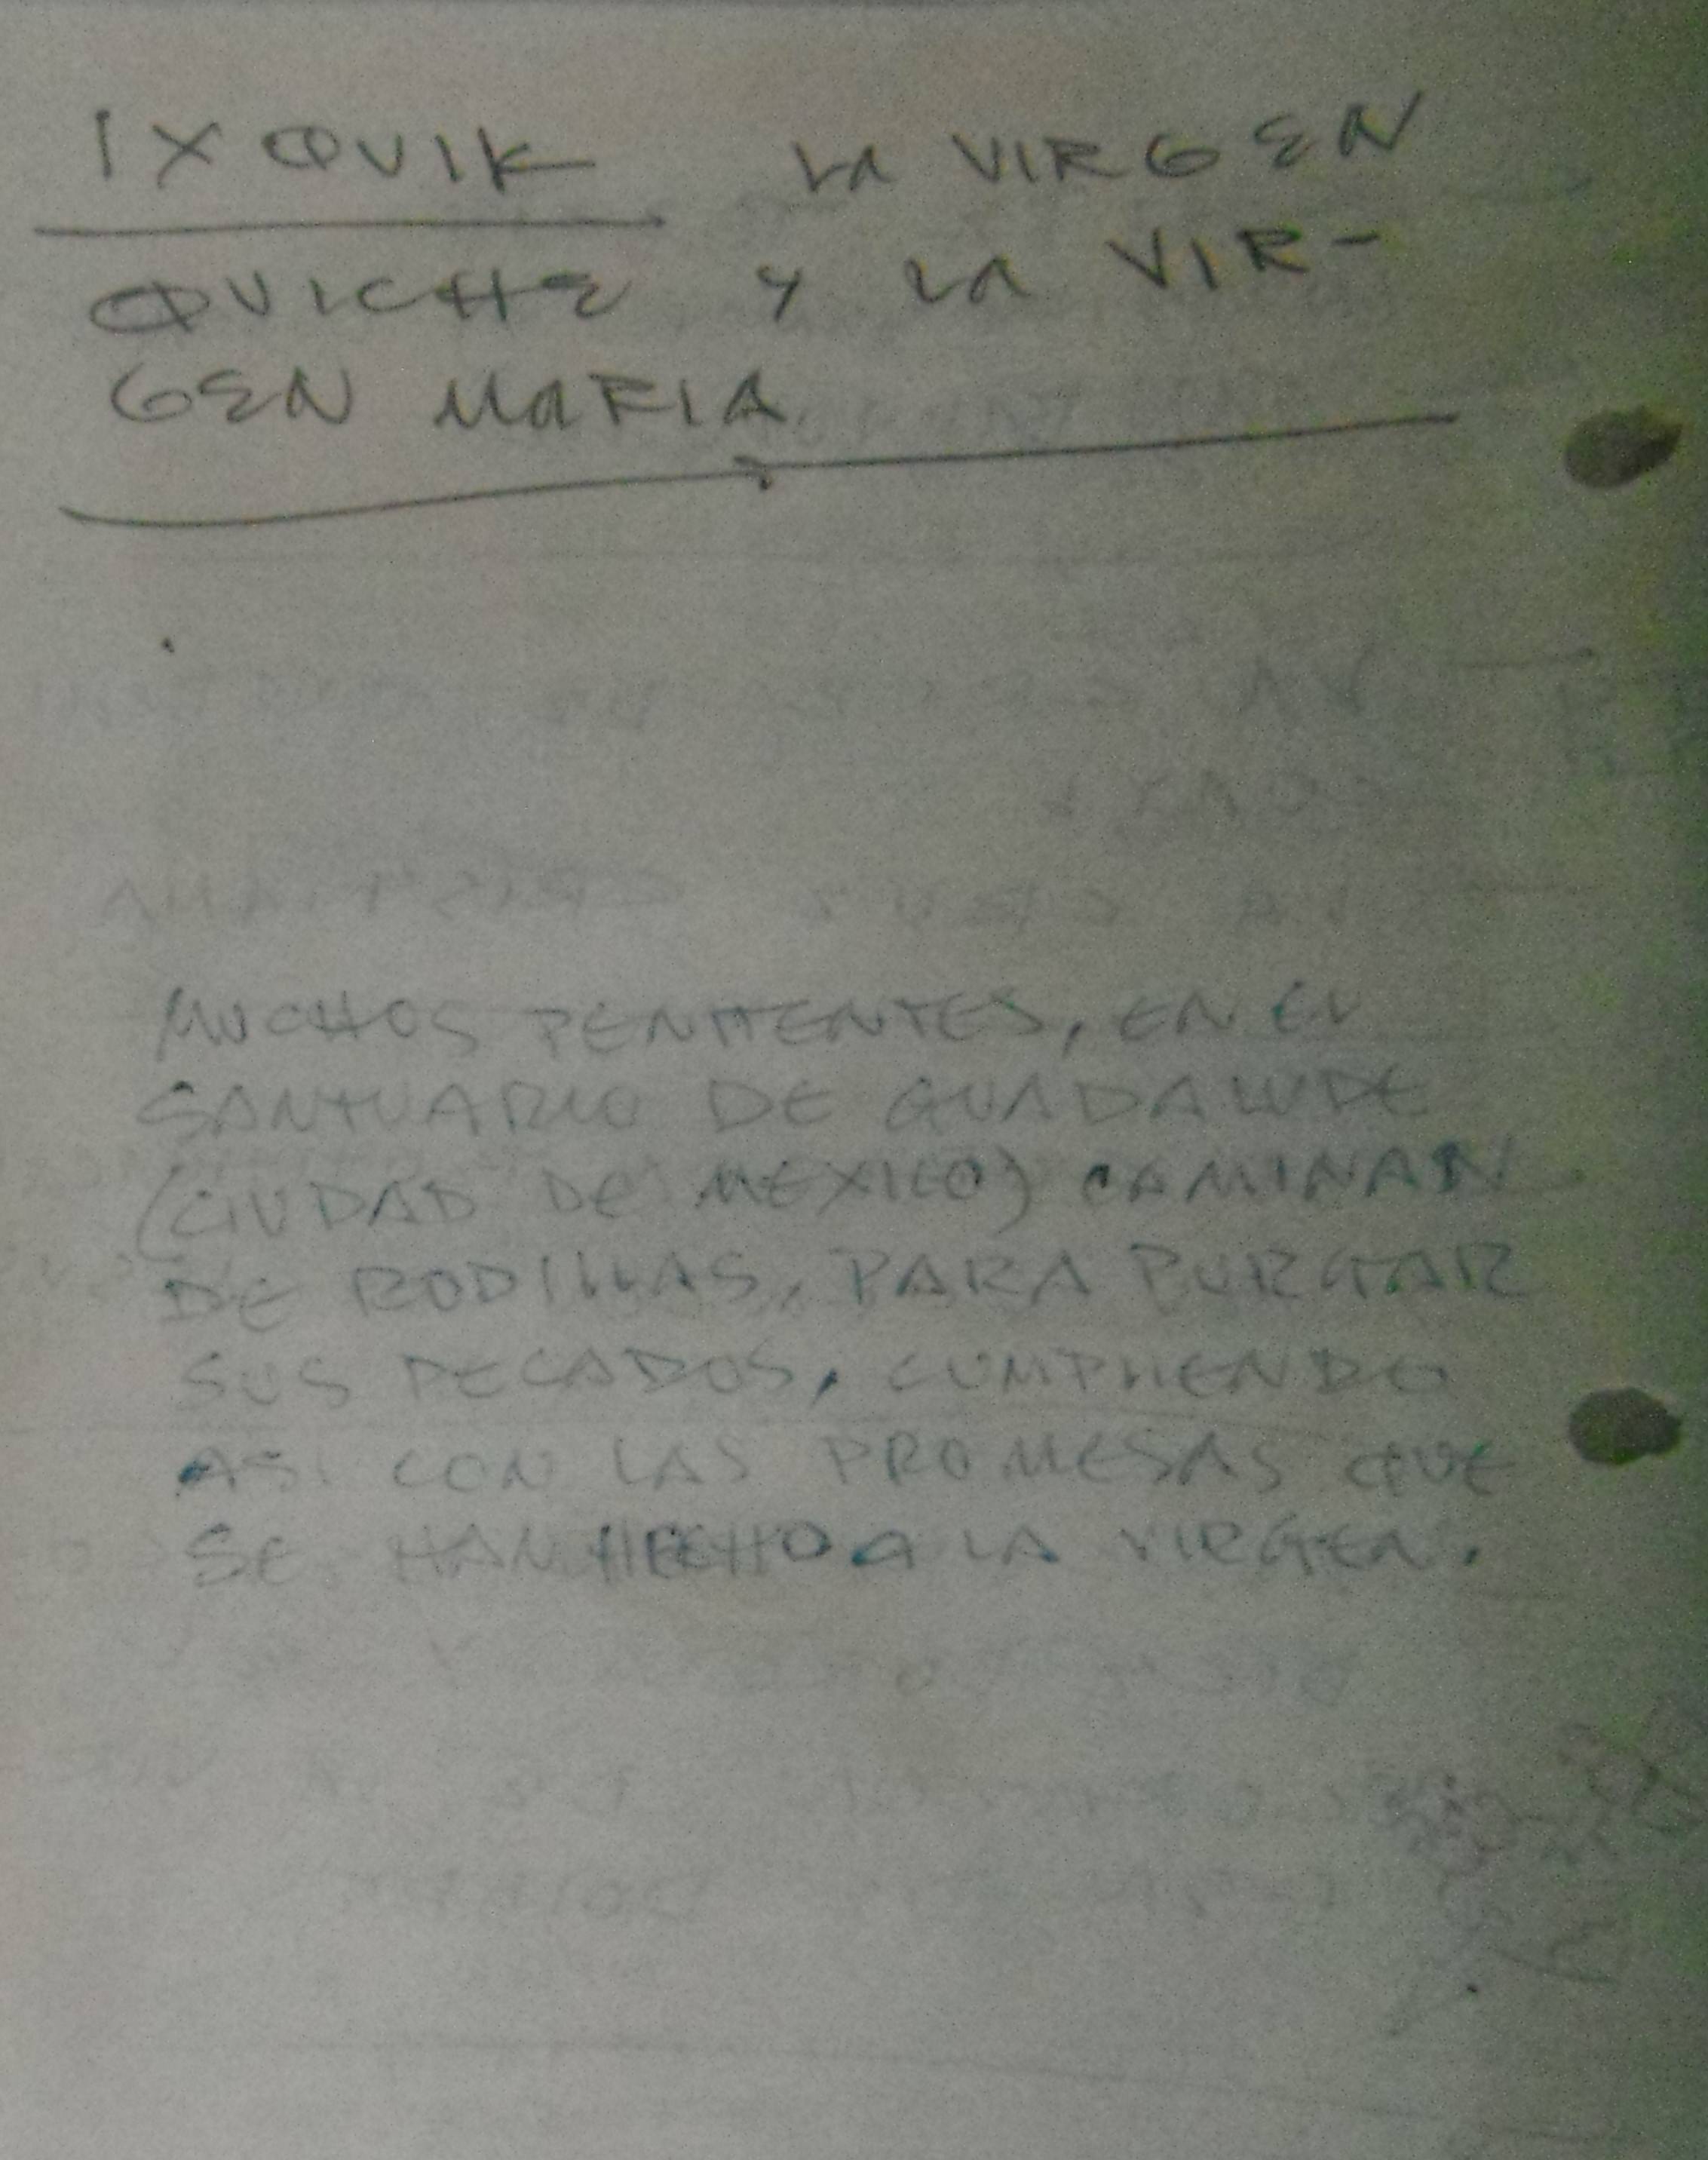 IXQUIK LA VIRGEN
QUICHE Y LA VIR-
GEN MARIA
MUCHOS PENITENTES, EN EL
SANTUARIO DE GUADALUPE
(CIUDAD DE MEXICO) CAMINAN
DE RODILLAS, PARA PURGAR
SUS PECADOS, CUMPLIENDO
ASI CON LAS PROMESAS QUE
SE HAN HECHO A LA VIRGEN.